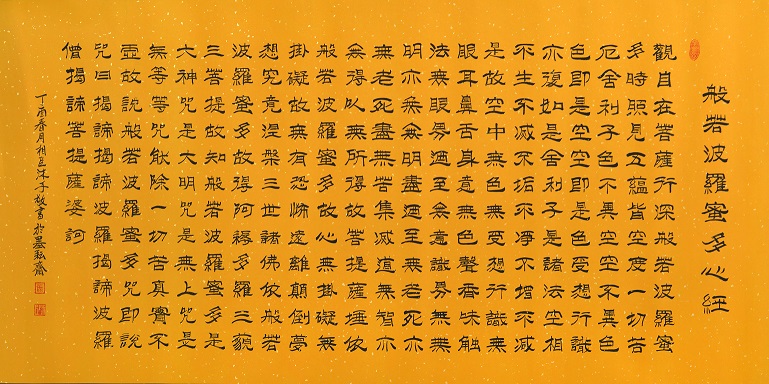 般若波羅蜜多心經
觀自在菩薩行深般若波羅蜜
多時照見五蘊皆空度一切苦
厄舍利子色不異空空不異色
色即是空空即是色受想行識
亦復如是舍利子是諸法空相
不生不滅不垢不淨不增不減
是故空中無色無受想行識無
眼耳鼻舌身意無色聲香味觸
法無眼界乃至無意識界無無
明亦無無明盡乃至無老死亦
無老死盡無苦集滅道無智亦
無得以無所得故菩提薩埵依
般若波羅蜜多故心無掛礙無
掛礙故無有恐怖遠離顛倒夢
想究竟涅槃三世諸佛依般若
波羅蜜多故得阿耨多羅三藐
三菩提故知般若波羅蜜多是
大神咒是大明咒是無上咒是
無等等咒能除一切苦真實不
虛故說般若波羅蜜多咒即說
咒曰揭諦揭諦波羅揭諦波羅
僧揭諦菩提薩婆訶
丁酉春月相邑沐子書於墨齋